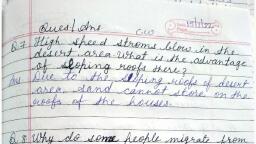 Ques/Ans
CW
Q.7. High speed stroms blow in the
desert area. What is the advantage
of sloping roofs there?
Ans Due to the sloping roofs of desert
area, sand cannot store on the
roofs of the houses.
Q.8. Why do some people migrate from